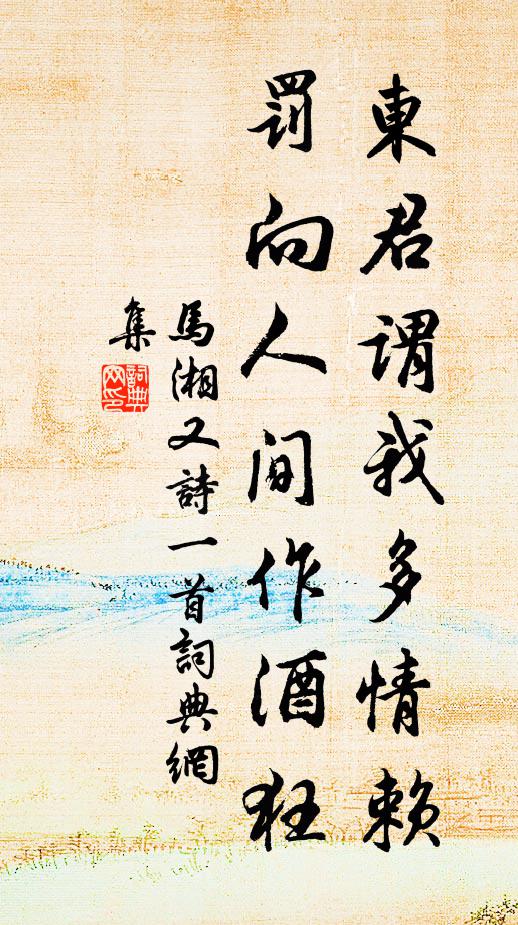 東君謂我多情賴
罰向人間作酒狂
馬湘又詩一首詞典網
集
詞典
网印